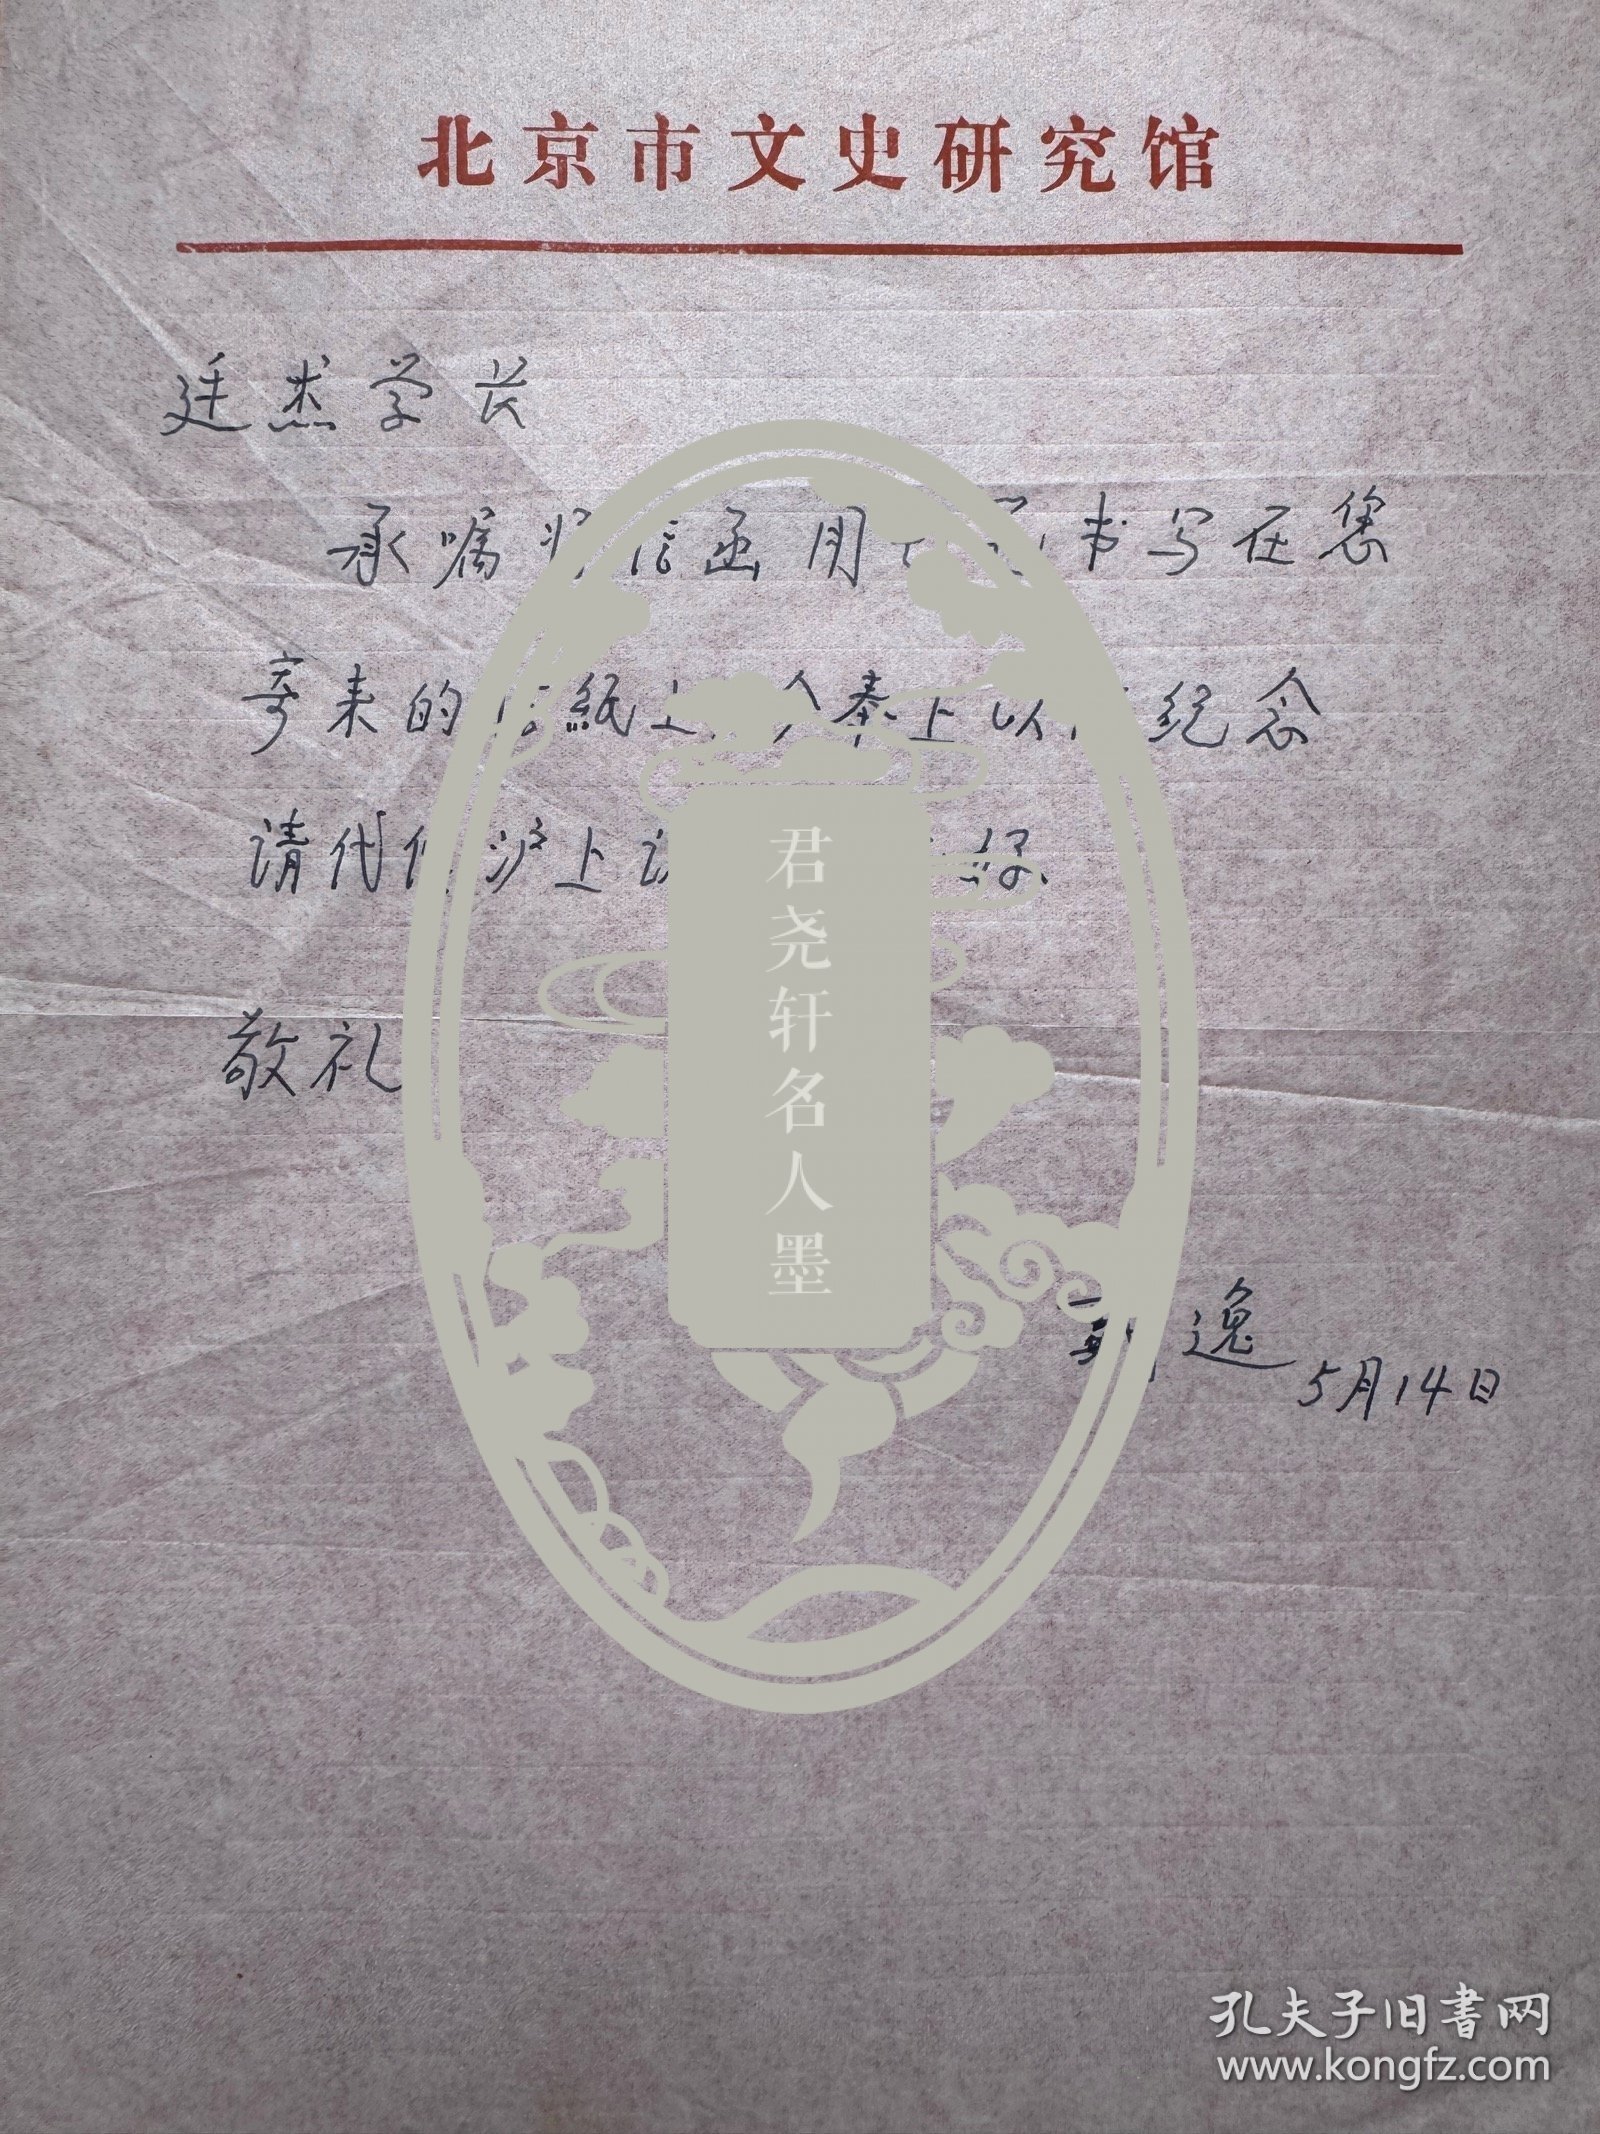 北京市文史研究馆
廷杰学长
承嘱将信函用书写在您
寄来的信紙上今奉上以纪念
请代沪上好
敬礼
逸
5月14日
君尧轩名人墨
孔夫子旧書网
www.kongfz.com